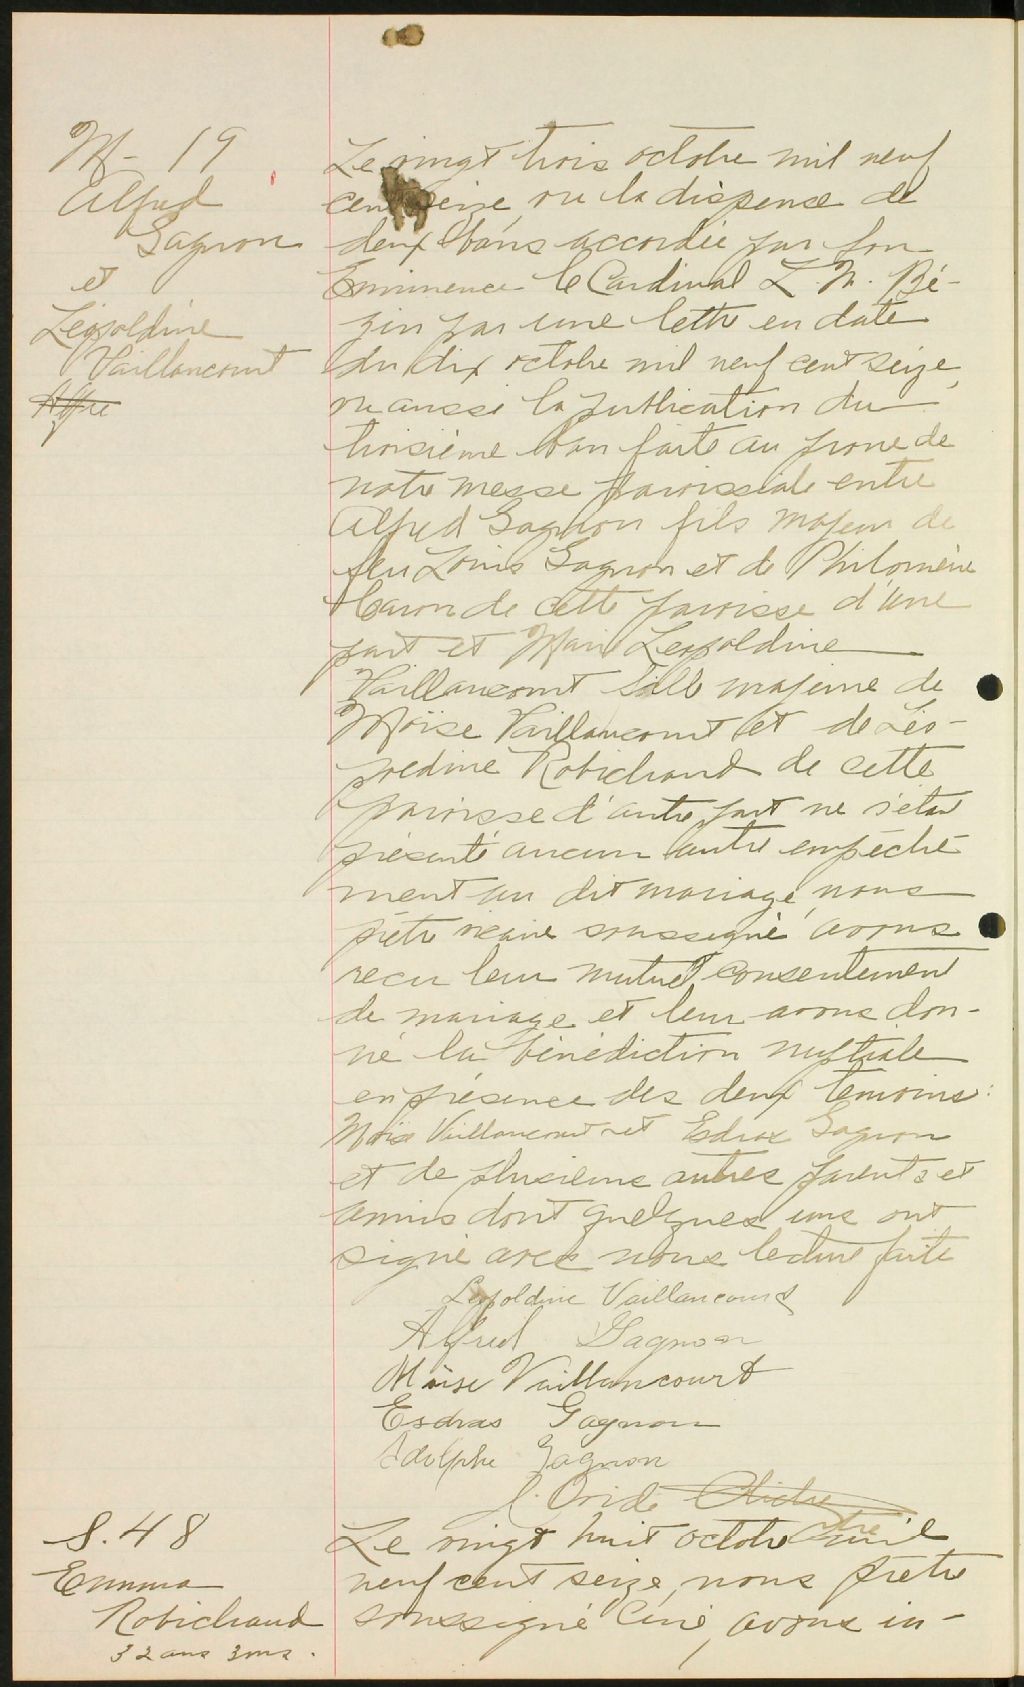 M- 19
Alfred
Gagnon
et
Léopoldine
Vaillancourt
Affre
Le vingt trois octobre mil neuf
cent seize, vu la dispense de
deux bans accordée par Son
Eminence le Cardinal L. N. Bé-
gin par une lettre en date
du dix octobre mil neuf cent seize,
vu aussi la publication du
troisième ban faite au prone de
notre messe paroissiale entre
Alfred Gagnon fils majeur de
feu Louis Gagnon et de Philomène
Caron de cette paroisse d'une
part et Marie Leopoldine
Vaillancourt fille majeure de
Moïse Vaillancourt et de Léo-
poldine Robichaud de cette
paroisse d'autre part ne s'étant
présenté aucun autre empêche
ment au dit mariage, nous
prêtre vicaire soussigné avons
recu leur mutuel consentement
de mariage et leur avons don-
né la bénédiction nuptiale
en présence des deux temoins:
Moïse Vaillancourt et Edras Gagnon
et de plusieurs autres parents et
amis dont quelques uns ont
signé avec nous lecture faite
Leopoldine Vaillancourt
Alfred Gagnon
Moïse Vaillancourt
Esdras Gagnon
Adolphe Gagnon
J. Ovide Cliche
ptre
S. 48
Emma
Robichaud
32 ans 3 ms.
Le vingt huit octobre mil
neuf cent seize, nous prêtre
soussigné Curé, avons in-